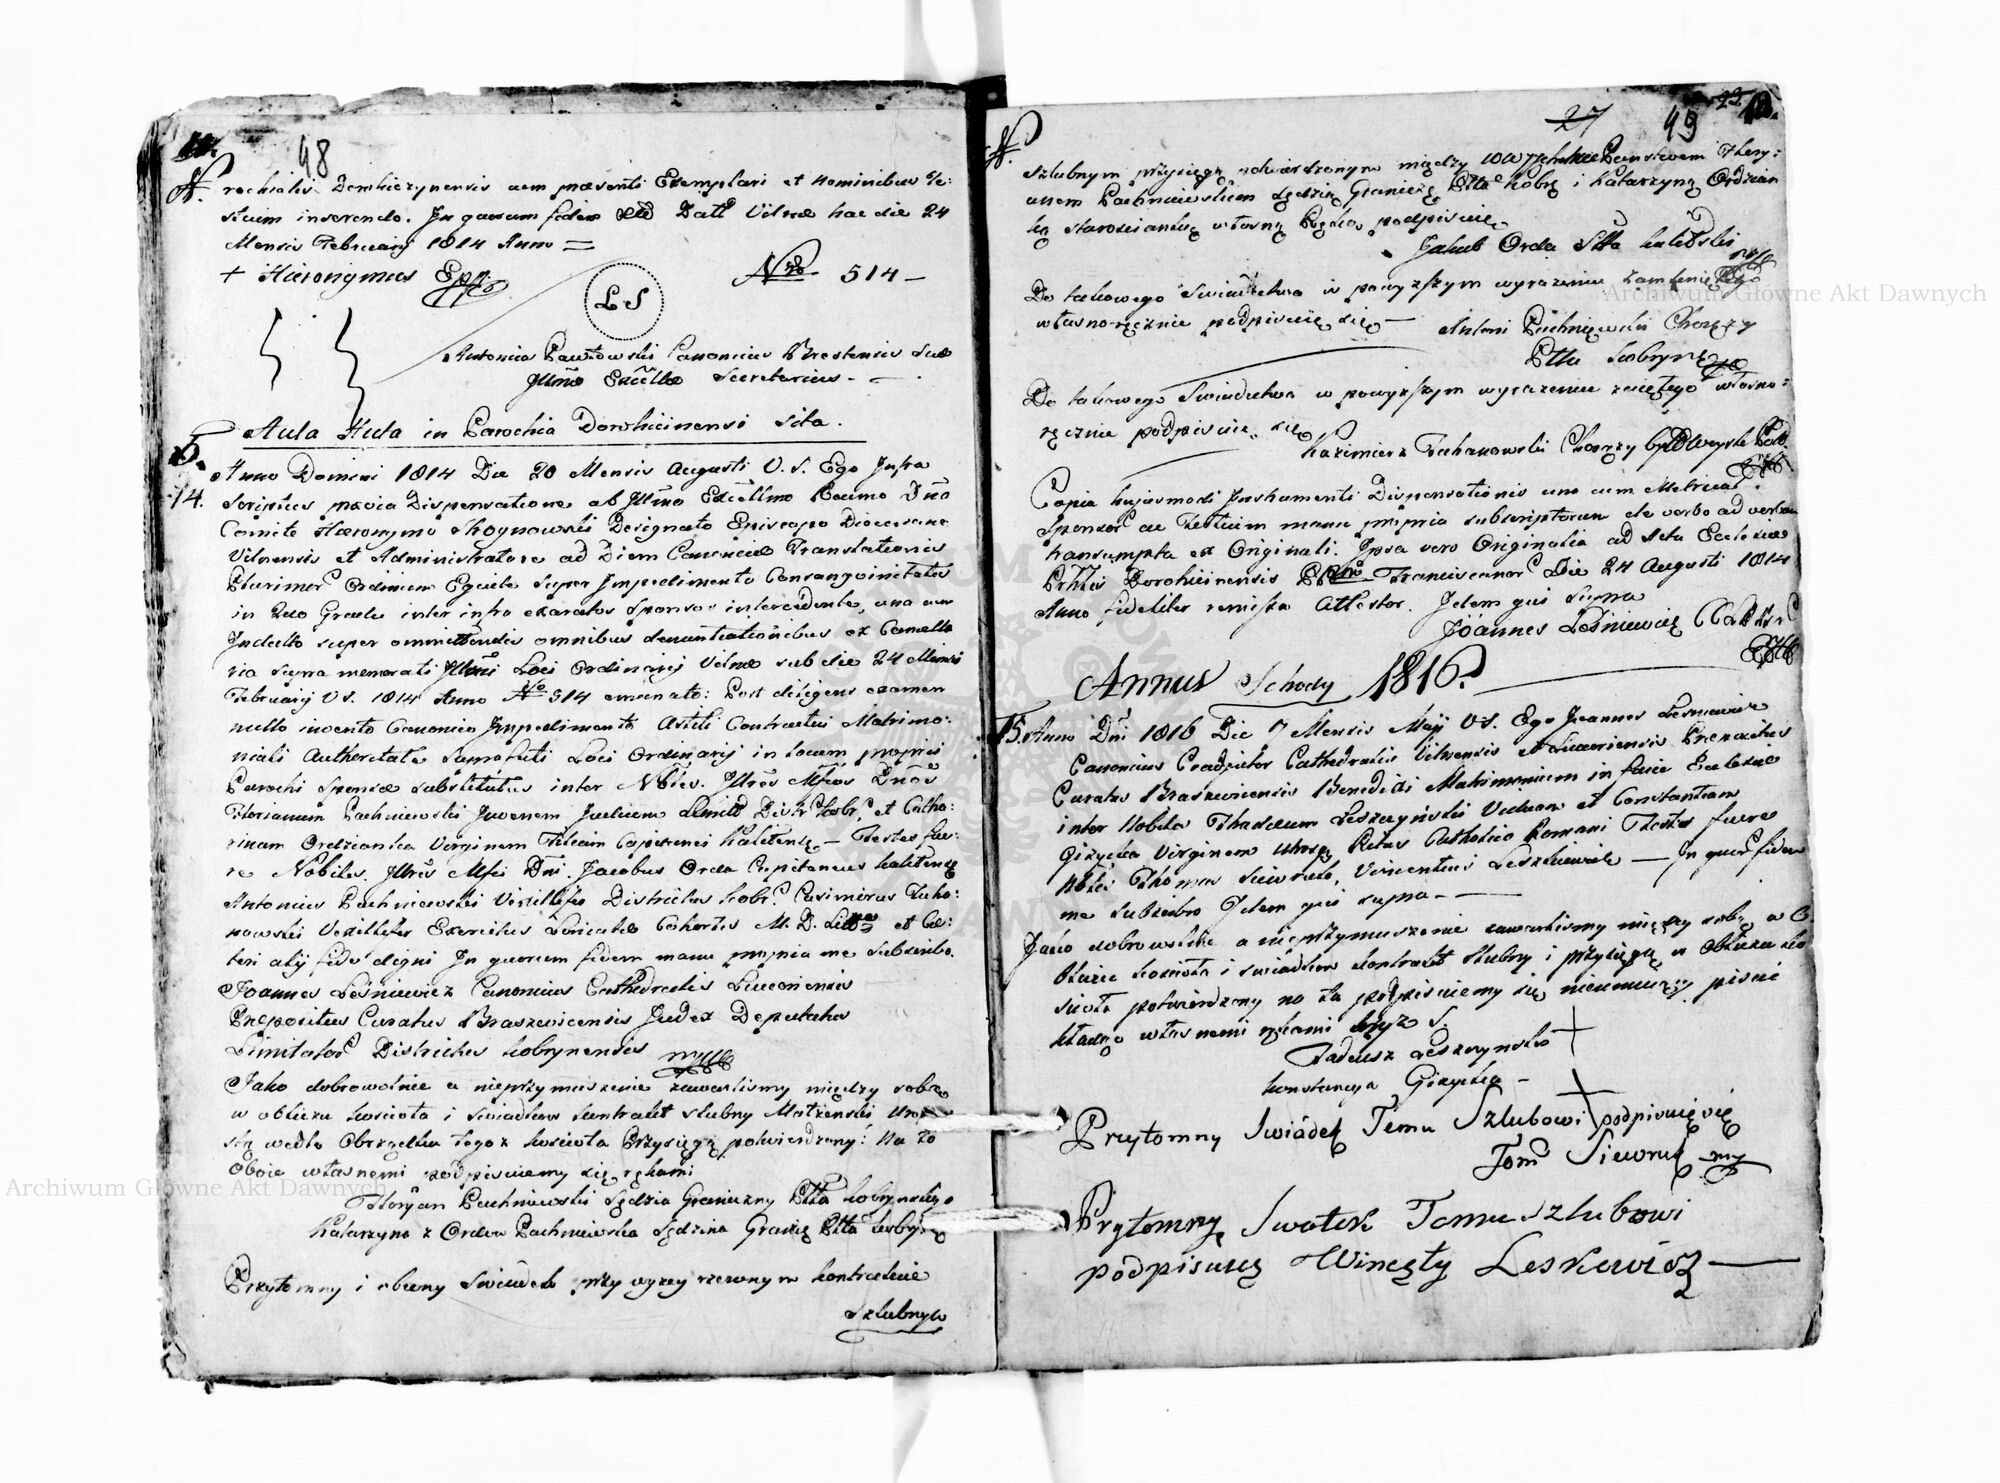 48
rochialis Dorohiczynensis cum præsenti Exemplari et nominibus Te:
stium inserendo. In quorum fidem Datt Vilnæ hac die 24
Mensis Februarij 1814 Anno =
+ Hieronymus Epp
Nro 514 –
L S
Antonius Pawłowski Canonicus Brestensis Suæ
Illmæ Excllæ Secretarius. –
Aula Huta in Parochia Dorohicinensi Sita.
5.
14.
Anno Domini 1814 Die 20 Mensis Augusti V. S. Ego Infra
scriptus prævia Dispensatione ab Illmo Excellmo Dño
Comite Hieronymo Stroynowski Designato Episcopo Diœcesano
Vilnensis et Administratore ad Diem Canonicæ Translationis
Plurimor Ordinum Equite Super Impedimento Consangvinitatis
in 2do Gradu inter infra exaratos Sponsos intercedente, una cum
Indulto super omittendis omnibus denuntiationibus ex Cancella
ria supra memorati Illmi Loci Ordinarij Vilnæ sub die 24 Mensis
Februarij V S. 1814 Anno Nro 514 emanato: Post diligens examen
nullo invento Canonico Impedimento Astiti Contractui Matrimo:
niali Authoritate Loci Ordinarij in locum proprii
Parochi Sponsæ substitutus inter Nbiles. Illres Mficos Dños
Florianum Pachniewski Juvenem Judicem Distr Kobr, et Catha:
rinam Ordzianka Virginem Filiam Capitanei – Testes fue:
re Nobiles. Illres Mfci Dni. Jacobus Orda Capitaneus
Antonius Pachniewski Vexillifer Districtus Kobr. Casimirus Tucha:
nowski Vexillifer Exercitus Cohortis M. D. Litt et Ce:
teri alij fide digni In quorum fidem manu propria me Subscribo.
Joannes Leśniewicz Canonicus Cathedralis Luceoriensis
Præpositus Curatus Braszevicensis Judex Deputatus
Limitator Districtus Kobrynensis mpp
Jako dobrowolnie a nieprzymuszenie zawarliśmy między sobą
w obliczu kościoła i Swiadkow kontrakt szlubny Małżenski
wedle Obrządku tegoż kościoła Przysięgą potwierdzony: Na to
Oboie własnemi podpisuiemy się rękami
Floryan Pachniewski Sędzia Graniczny Pttu kobrynskigo
Katarzyna z Ordow Pachniewska Sędzina Granicz Pttu kobryn
Przytomny i obecny Swiadek przy wyzey rzeczonym kontrakcie
Szlubnym
27
49
szlubnym przysięgą potwierdzonym między Państwem Flory:
anem Pachniewskim Sędzią Granicz Pttu Kobr i Katarzyną Ordzian
ką Starościanką własną Ręką podpisuię
Jakub Orda Stta
Do takowego Swiadectwa w powyzszym wyrazeniu
własno-ręcznie podpisuię się – Antoni Pachniewski Chorązy
Pttu kobryn
Do takowego Swiadectwa w powyzszym wyrazeniu własno:
ręcznie podpisuię się
Kazimierz Tuchanowski Chorązy
Copia hujusmodi Instrumenti Dispensationis una cum Metrica
Sponsor ac Testium manu propria subscriptorum de verbo ad verbum
transumpta ex Originali. Ipsa vero Originalia ad Acta Ecclesiæ
Dorohicinensis Franciscanor Die 24 Augusti 1814
Anno fideliter remissa Attestor. Idem qui Supra
Joannes Leśniewicz
Annus Schody 1816.
15. Anno Dni 1816 Die 7 Mensis Maij V. S. Ego Joannes Leśniewicz
Canonicus Cathedralis Vilnensis et Luceoriensis Præpositus
Curatus Braszevicensis Benedixi Matrimonium in facie Ecclesiæ
inter Nobiles Thadæum Leszczyński Viduum et Constantiam
Giżycka Virginem Ritus Catholico Romani Testes fuere
Nbles Thomas Siewruk, Vincentius Leszkiewicz – In quor fidem
me Subscribo Idem qui supra – –
Jako dobrowolnie a nieprzymuszenie zawarlismy między sobą w O
bliczu kościoła i swiadkow kontrakt szlubny i przysięgą w Obliczu ko
scioła potwierdzony na to podpisuiemy się nieumieiący pisać
kładąc własnemi rękami krzyz S.
Tadeusz Leszczynski +
Konstancya Giżycka – +
Prytomny Swiádek Temu Szlubowi podpisuię się
Tom Siewruk mp
Prytomny Swatek Temu Szlubowi
podpisuię Winсęty Leskewicz –
Archiwum Główne Akt Dawnych
Archiwum Główne Akt Dawnych